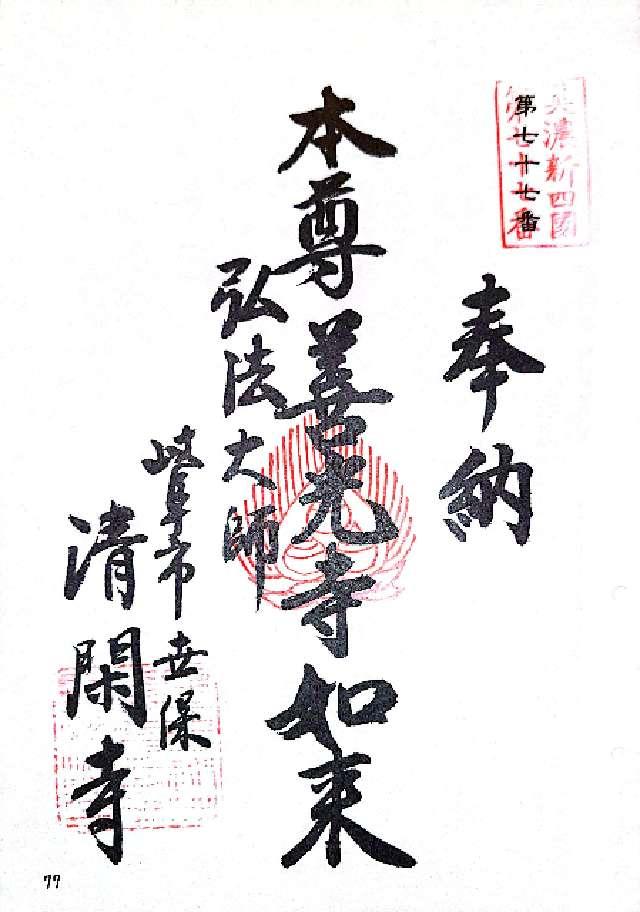 美濃新四国
第七十七番
奉納
本尊善光寺如来
弘法大師
岐阜市世保
清閑寺
77